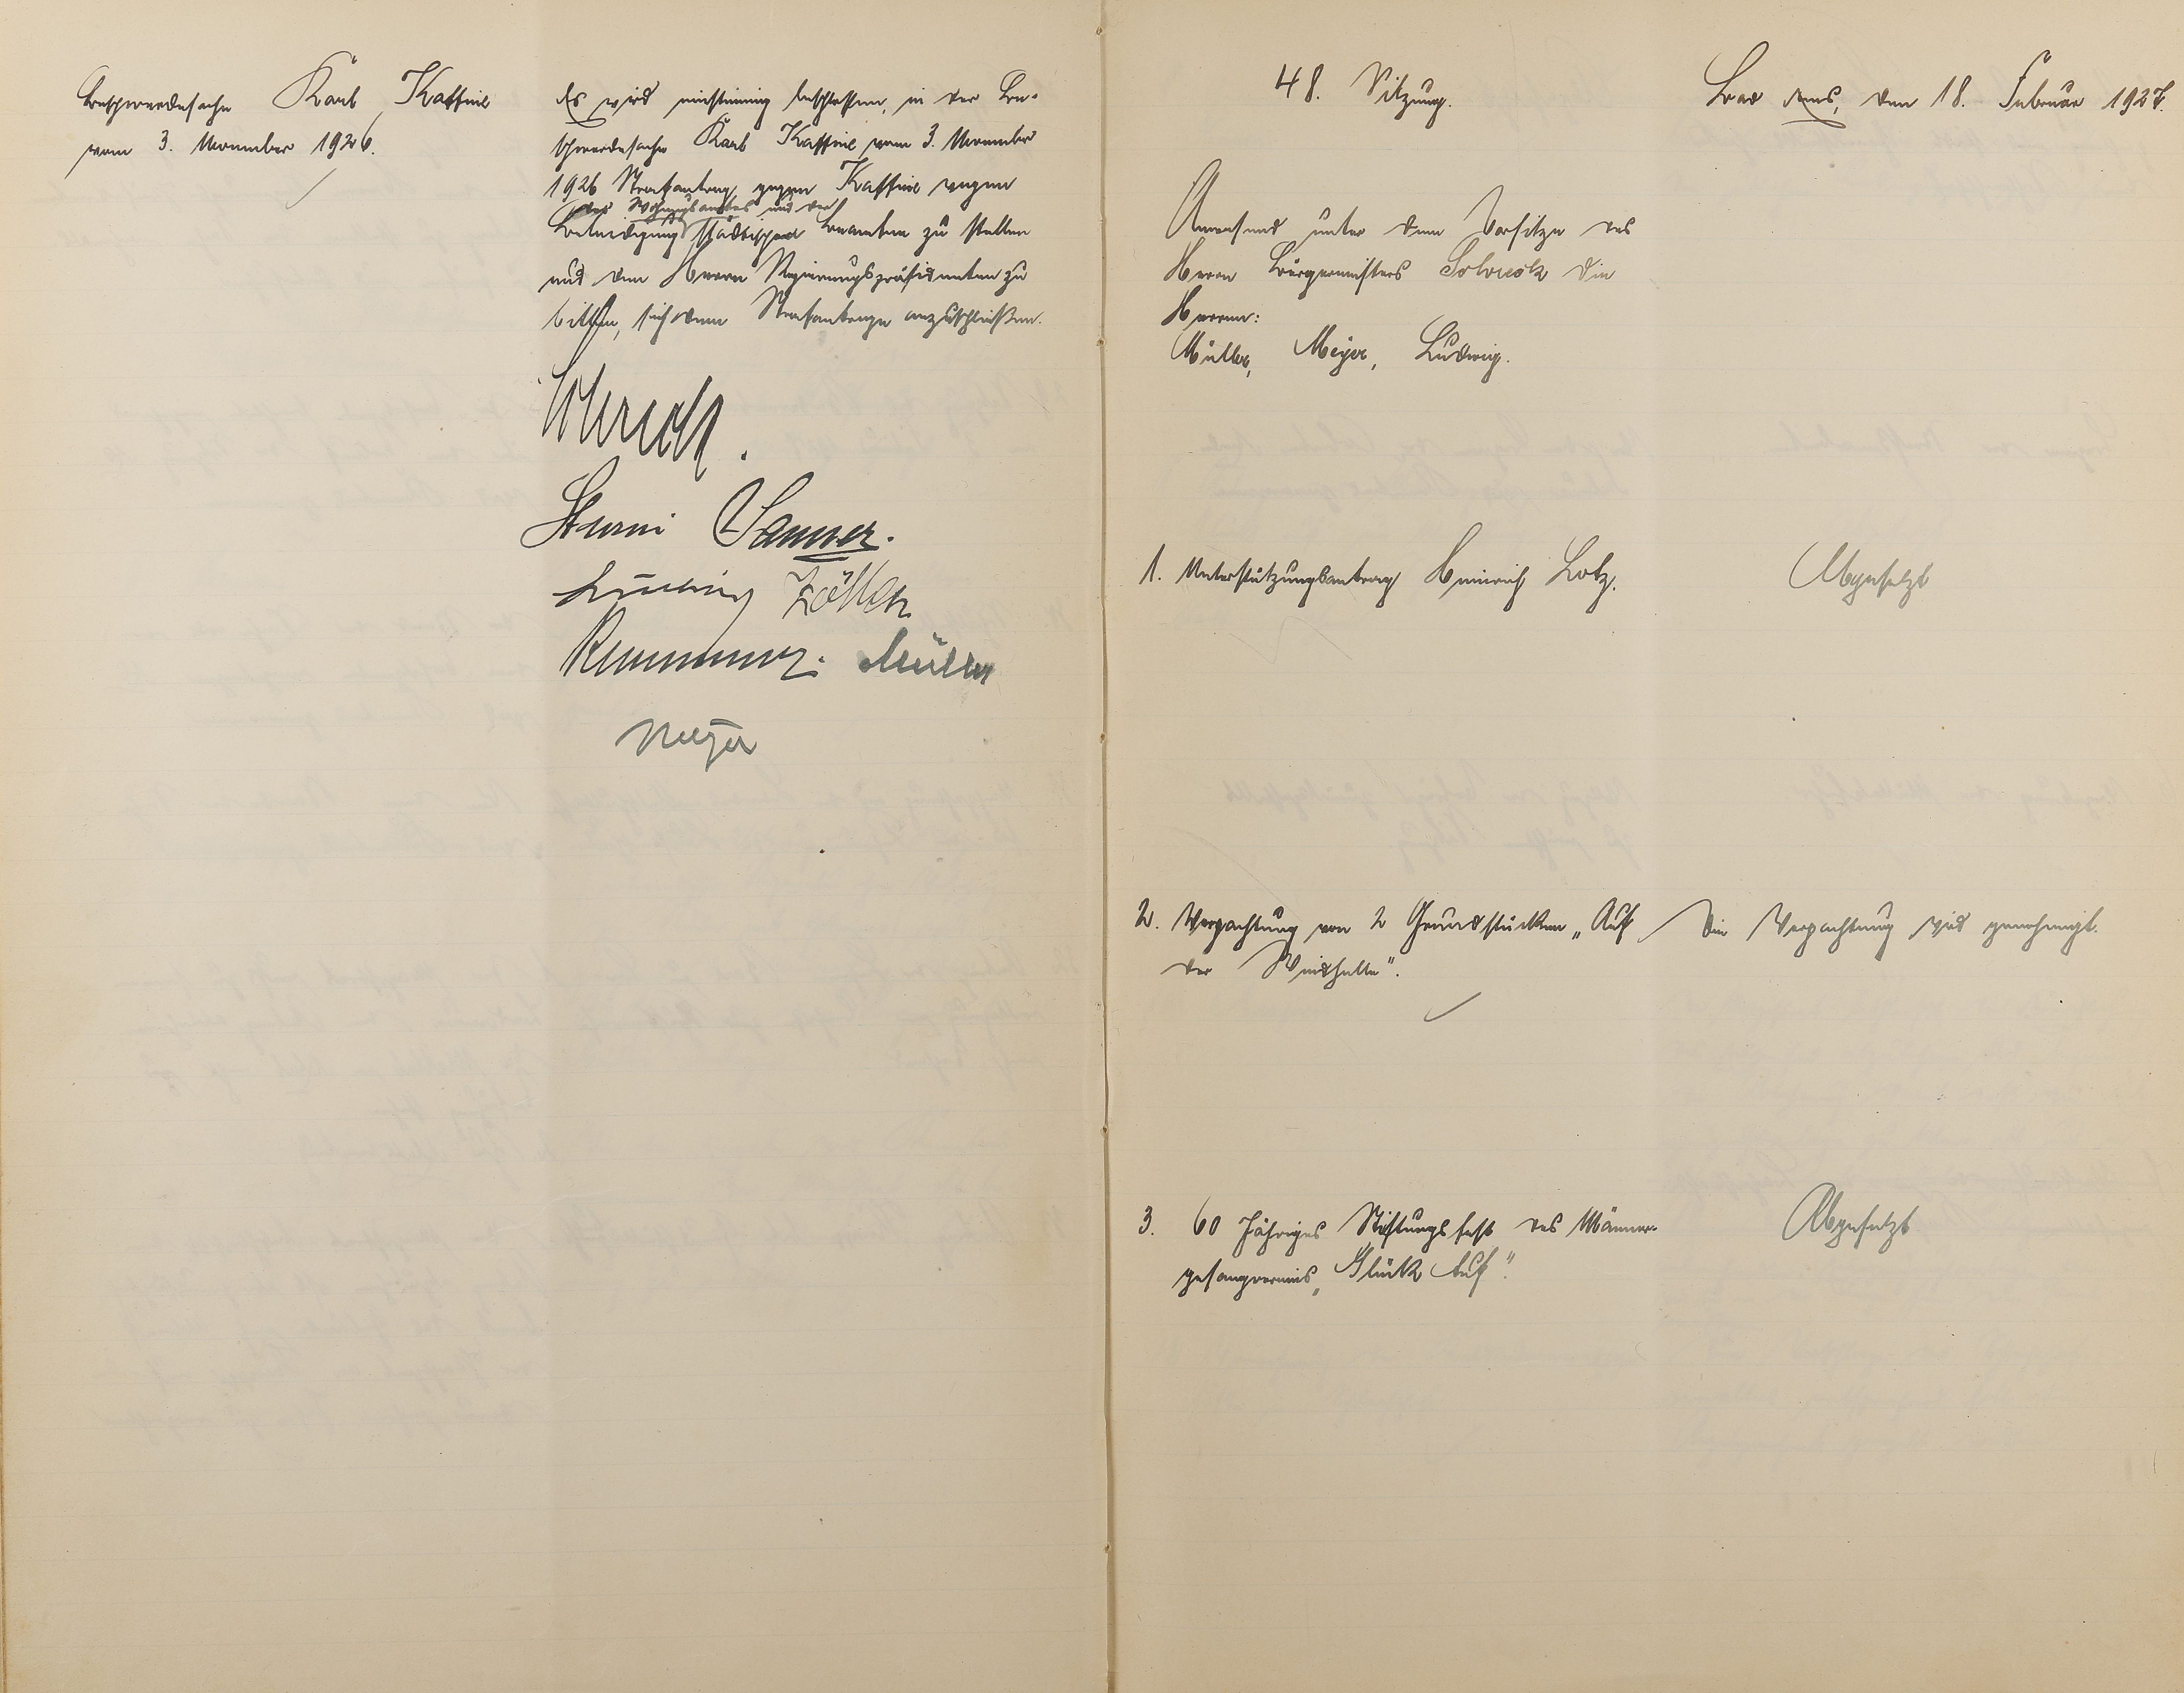 Beschwerdesache Karl Kaffine
vom 3. November 1926.
Es wird einstimmig beschlossen, in der Be-
schwerdesache Karl Kaffine vom 3. November
1926 Strafantrag gegen Kaffine wegen
des Wohnungsamtes und der
Beleidigung städtischer Beamten zu stellen
und den Herrn Regierungspräsidenten zu
bitten, sich dem Strafantrage anzuschließen.
Sanner.
Ludwig
Müller
Meyer
48. Sitzung.
Bad Ems, den 18. Februar 1927.
Anwesend unter dem Vorsitze des
Herrn Bürgermeisters die
Herren:
Müller, Meyer, Ludwig.
1. Unterstützungsantrag Heinrich Lotz.
Abgesetzt
2. Verpachtung von 2 Grundstücken „Auf
der Weidhelle".
Die Verpachtung wird genehmigt.
3. 60 jähriges Stiftungsfest des Männer-
gesangvereins „Glück Auf".
Abgesetzt